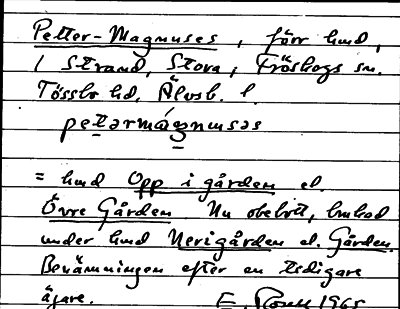 Petter-Magnuses, förr hmd,
i Strand, Stora, Fröskogs sn.
Tössbo hd, Älvsb. l.
petərmáɡnusəs
= hmd Opp i gården el.
Övre Gården Nu obebott, brukad
under hmd Nerigården el. Gården.
Benämningen efter en tidigare
ägare. E. 1965